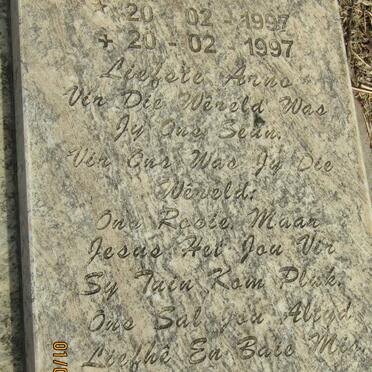 * 20 - 02 - 1997
+ 20 - 02 - 1997
Liefste Arno
Vir Die Wêreld Was
Jy Ons Seun.
Vir Ons Was Jy Die
Wêreld.
Ons Rosie Maar
Jesus Het Jou Vir
Sy Tuin Kom Pluk.
Ons Sal Jou Altyd
Liefhê En Baie Mis.